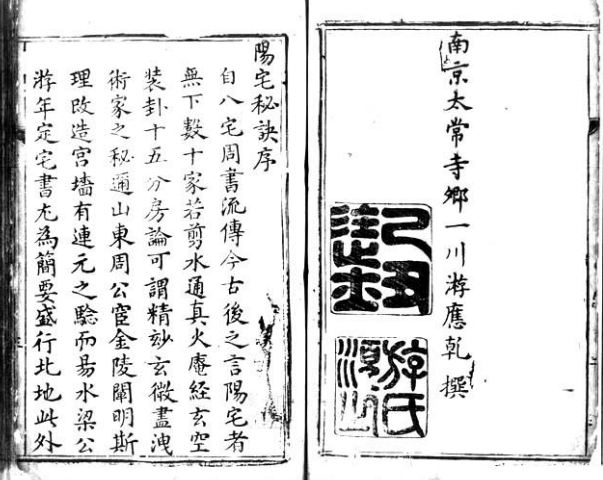 南京太常寺卿一川游應乾撰
游氏
陽宅秘訣序
自八宅周書流傳今古後之言陽宅者
無下數十家若剪水通真火庵経玄空
装卦十五分房論可謂精妙玄微盡洩
術家之秘邇山東周公宦金陵闡明斯
理改造宫墻有連元之驗而易水梁公
游年定宅書尤為簡要盛行北地此外